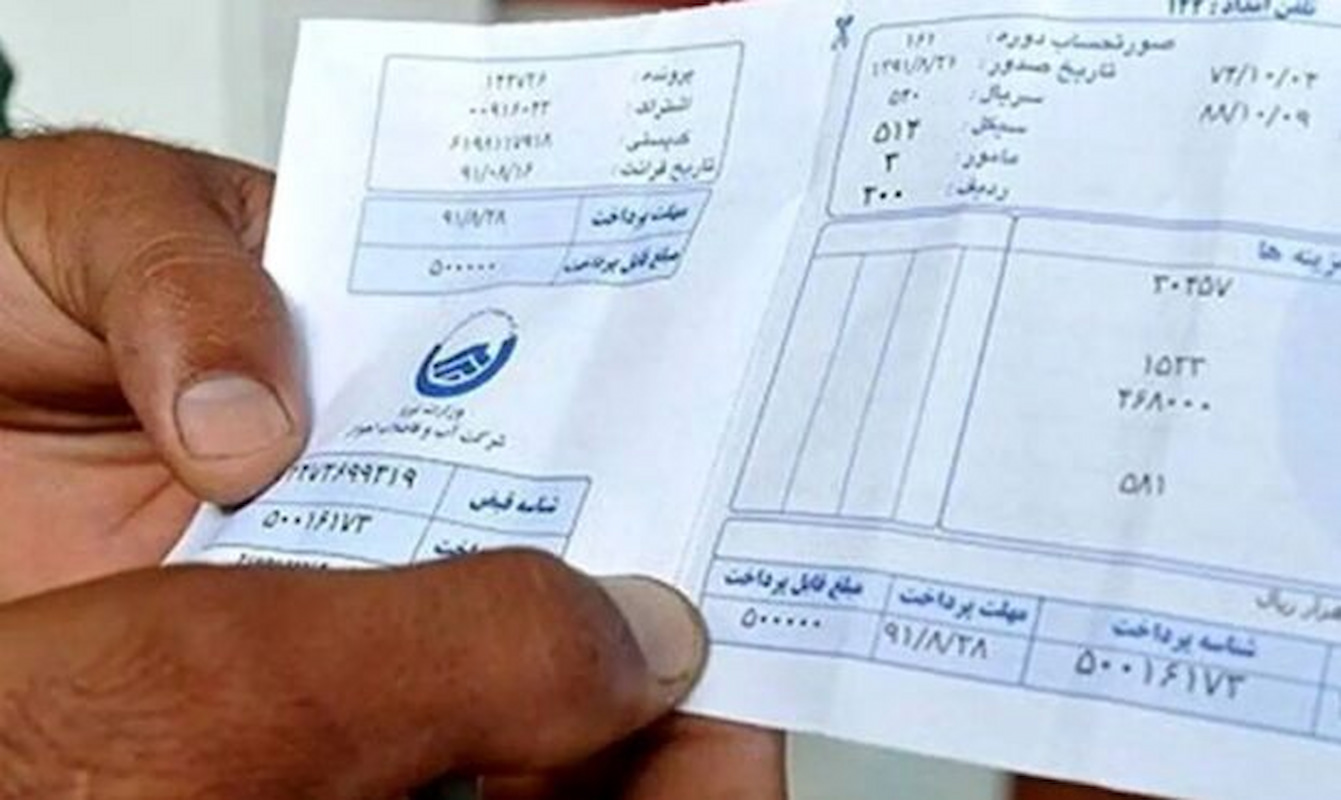 تلفن امداد: ۱۲۲
صورتحساب دوره: ۱۶۱
تاریخ صدور: ۱۳۹۱/۸/۲۶
۷۳/۱۰/۰۳
سریال: ۵۳۰
۸۸/۱۰/۰۹
سیکل: ۵۱۳
مامور: ۳
ردیف: ۳۰۰
هزینه ها
۳۰۳۵۷
۱۵۳۳
۴۶۸۰۰۰
۵۸۱
ریال
شناسه پرداخت
مهلت پرداخت
مبلغ قابل پرداخت
۵۰۰۱۶۱۷۳
۹۱/۸/۲۸
۵۰۰۰۰۰
پرونده: ۱۳۳۷۲۶
اشتراک: ۰۰۹۱۶۰۲۳
کدپستی: ۶۱۹۸۱۱۷۹۱۸
تاریخ قرائت: ۹۱/۰۸/۱۶
مهلت پرداخت ۹۱/۸/۲۸
مبلغ قابل پرداخت ۵۰۰۰۰۰
وزارت نیرو
شرکت آب و فاضلاب اهواز
شناسه قبض
۵۰۰۱۶۱۷۳